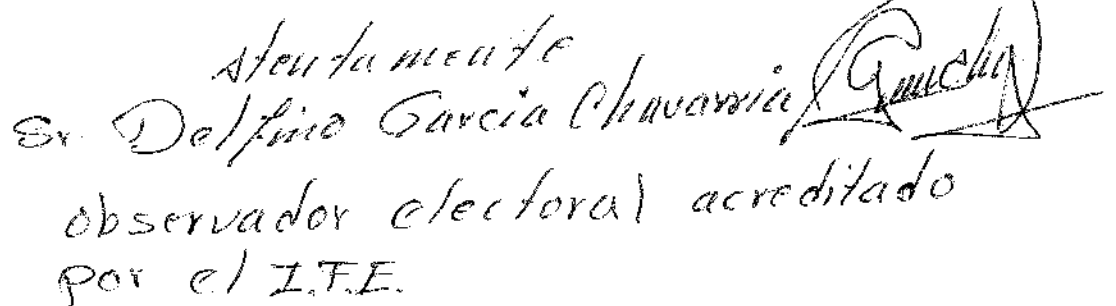 Atentamente
Sr. Delfino Garcia Chavarria
observador electoral acreditado
por el I.F.E.